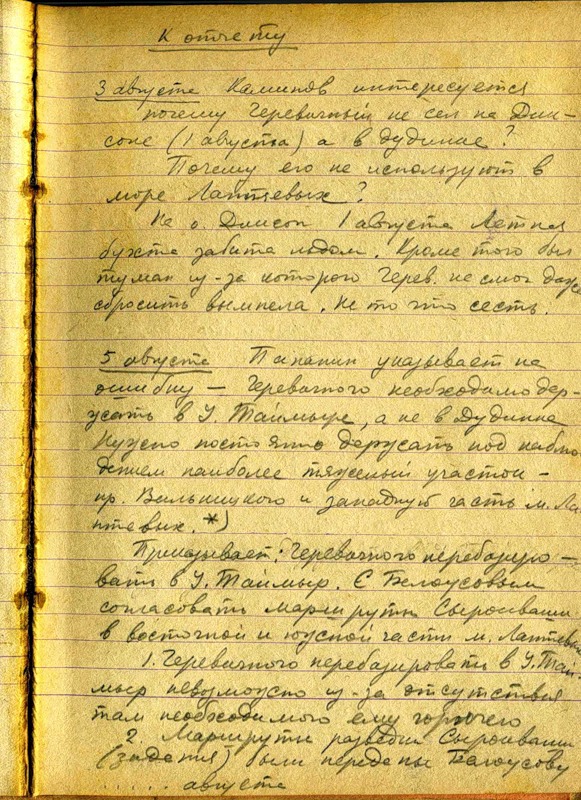 К отчету
3 августа Каминов интересуется
почему Черевичный не сел на Дик-
соне (1 августа) а в Дудинке?
Почему его не используют в
море Лаптевых?
На о. Диксон 1 августа Летная
бухта забита льдом. Кроме того был
туман из-за которого Черев. не смог даже
сбросить вымпела. Не то что сесть.
5 августа Папанин указывает на
ошибку — Черевичного необходимо дер-
жать в У. Таймыре, а не в Дудинке
Нужно постоянно держать под наблю-
дением наиболее тяжелый участок —
пр. Вилькицкого и западную часть м. Ла-
птевых. *)
Приказывает: Черевичного перебазиро-
вать в У. Таймыр. С Белоусовым
согласовать маршруты Сырокваши
в восточной и южной части м. Лаптевых
1. Черевичного перебазировать в У. Тай-
мыр невозможно из-за отсутствия
там необходимого ему горючего
2. Маршруты разведки Сырокваши
(задания) были переданы Белоусову
..... августа